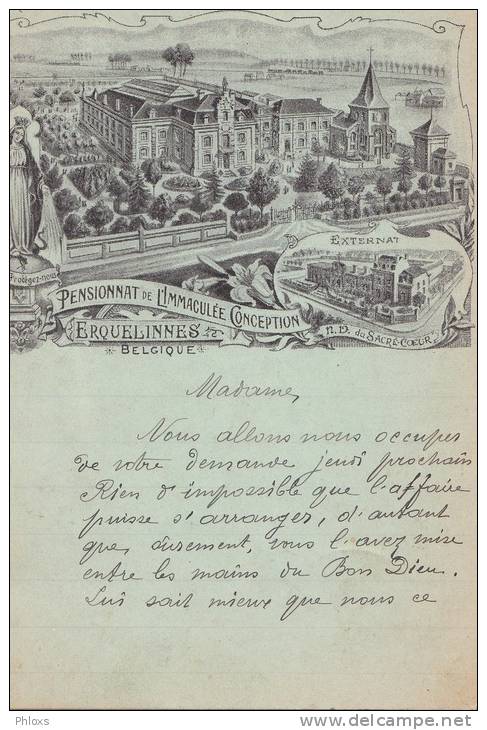 Protégez-nous
EXTERNAT
N. D. du SACRÉ-CŒUR
PENSIONNAT DE L'IMMACULÉE CONCEPTION
ERQUELINNES
BELGIQUE
Madame,
Nous allons nous occuper
de votre demande jeudi prochain
Rien d'impossible que l'affaire
puisse s'arranger, d'autant
que, surement, vous l'avez mise
entre les mains du Bon Dieu.
Lui sait mieux que nous ce
Phloxs
delcampe.net